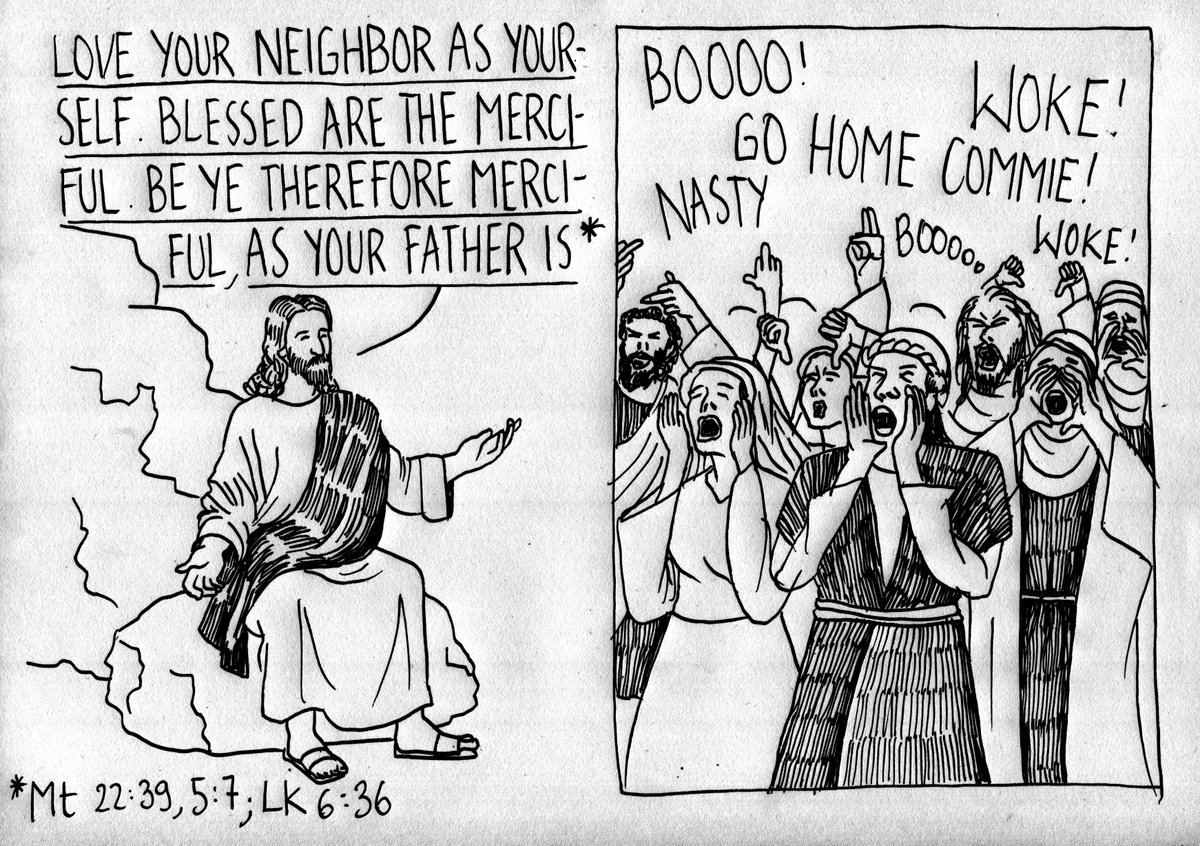 LOVE YOUR NEIGHBOR AS YOUR-
SELF. BLESSED ARE THE MERCI-
FUL. BE YE THEREFORE MERCI-
FUL, AS YOUR FATHER IS*
*Mt 22:39, 5:7; LK 6:36
BOOOO!
WOKE!
GO HOME COMMIE!
NASTY
BOOOO.
WOKE!